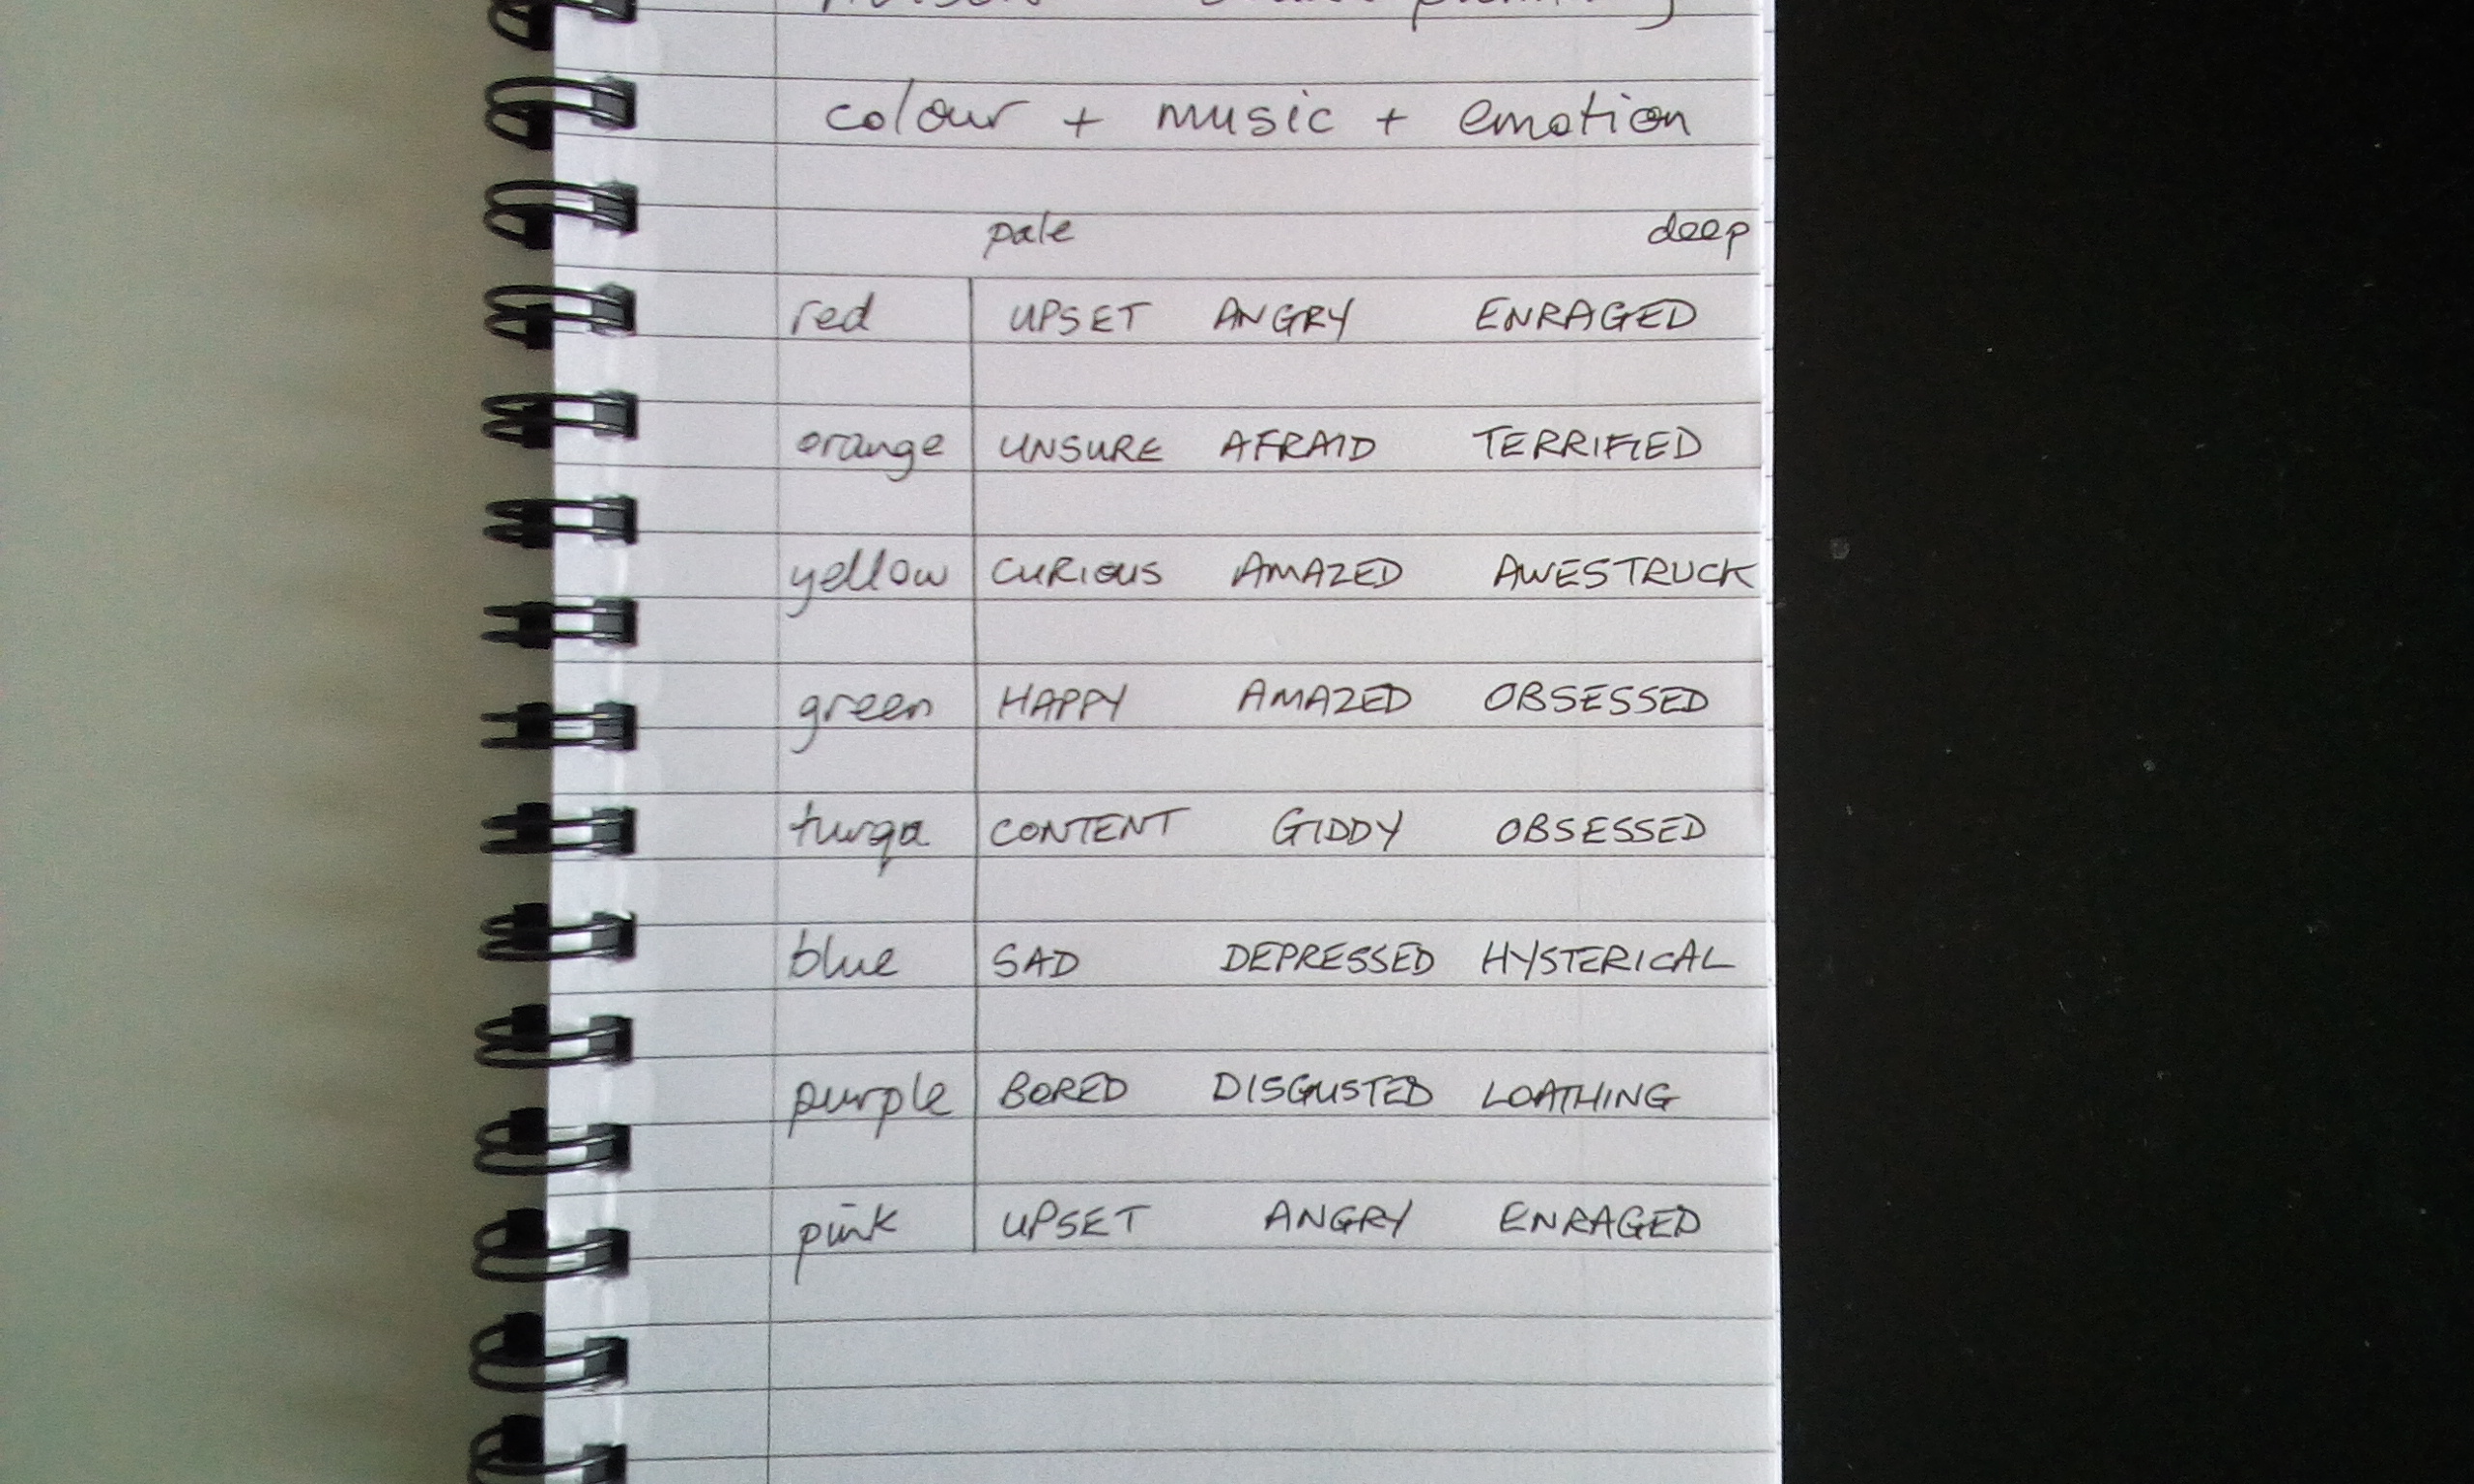 colour + music + emotion
pale deep
red UPSET ANGRY ENRAGED
orange UNSURE AFRAID TERRIFIED
yellow CURIOUS AMAZED AWESTRUCK
green HAPPY AMAZED OBSESSED
turqa CONTENT GIDDY OBSESSED
blue SAD DEPRESSED HYSTERICAL
purple BORED DISGUSTED LOATHING
pink UPSET ANGRY ENRAGED